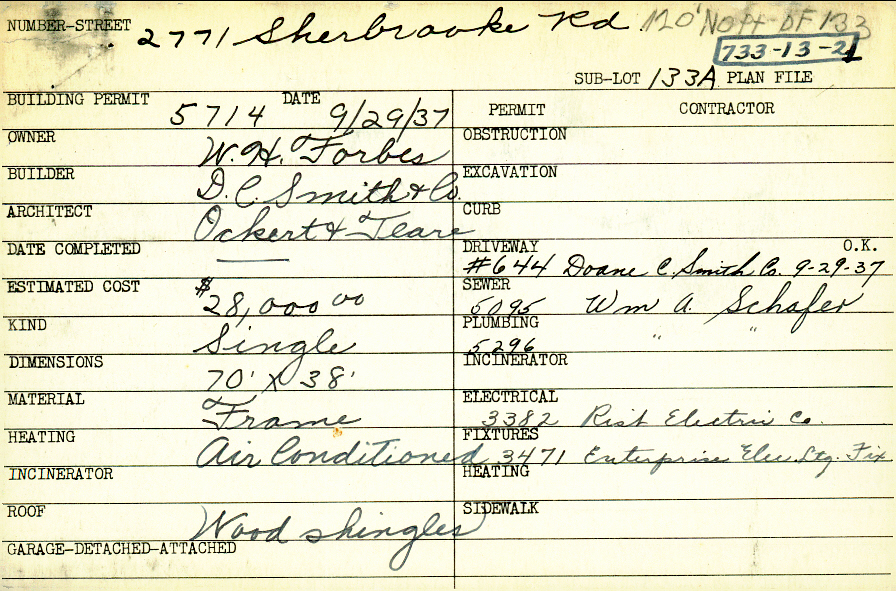 NUMBER-STREET 2771 Sherbrooke Rd 120' No pt OF 133
733-13-21
SUB-LOT 133A PLAN FILE
BUILDING PERMIT 5714 DATE 9/29/37
PERMIT CONTRACTOR
OWNER W. H. Forbes
OBSTRUCTION
BUILDER D. C. Smith & Co.
EXCAVATION
ARCHITECT Ockert & Teare
CURB
DATE COMPLETED ——
DRIVEWAY O.K.
#644 Doane C. Smith Co. 9-29-37
ESTIMATED COST $28,000 00
SEWER
5095 Wm A. Schafer
KIND Single
PLUMBING
5296 " "
DIMENSIONS 70' X 38'
INCINERATOR
MATERIAL Frame
ELECTRICAL
3382 Rist Electric Co.
HEATING Air Conditioned
FIXTURES
3471 Enterprise Elec. Ltg. Fix
INCINERATOR
HEATING
ROOF Wood shingles
SIDEWALK
GARAGE-DETACHED-ATTACHED